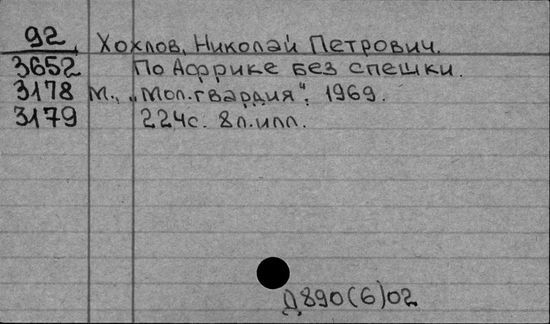 92 Хохлов, Николай Петрович.
3652 По Африке без спешки.
3178 М., „Мол.гвардия“, 1969.
3179 224с. 8л.илл.
Д890(6)02